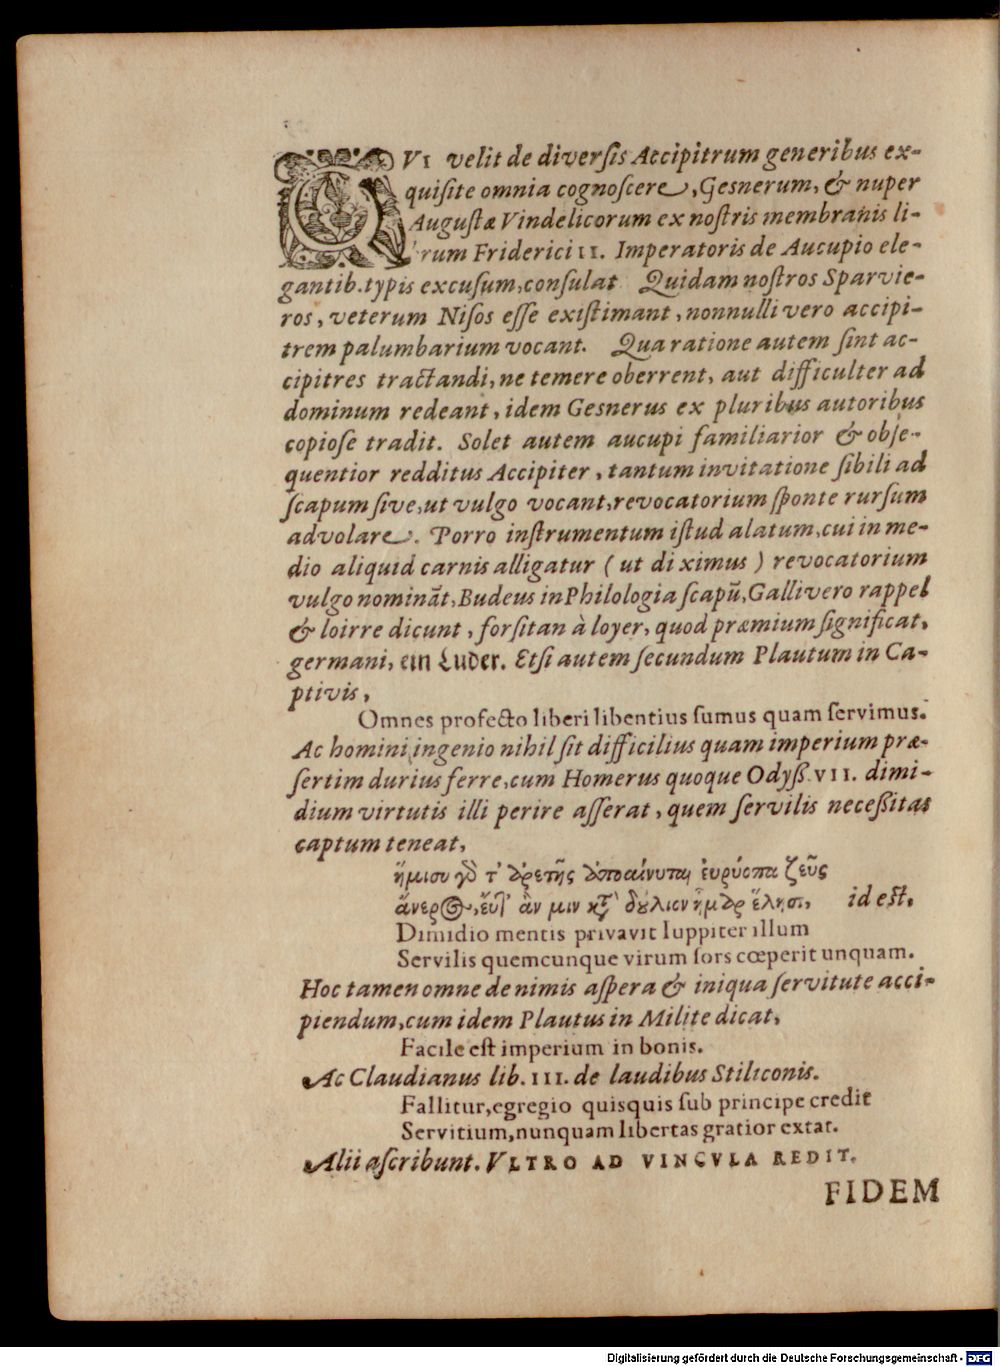 QVI velit de diverſis Accipitrum generibus ex-
quiſite omnia cognoſcere, Gesnerum, & nuper
Auguſtæ Vindelicorum ex noſtris membranis li-
brum Friderici II. Imperatoris de Aucupio ele-
gantib. typis excuſum, conſulat. Quidam noſtros Sparvie-
ros, veterum Niſos eſſe exiſtimant, nonnulli vero accipi-
trem palumbarium vocant. Qua ratione autem ſint ac-
cipitres tractandi, ne temere oberrent, aut difficulter ad
dominum redeant, idem Gesnerus ex pluribus autoribus
copioſe tradit. Solet autem aucupi familiarior & obſe-
quentior redditus Accipiter, tantum invitatione ſibili ad
ſcapum ſive, ut vulgo vocant, revocatorium ſponte rurſum
advolare. Porro inſtrumentum iſtud alatum, cui in me-
dio aliquid carnis alligatur ( ut diximus ) revocatorium
vulgo nominãt, Budeus in Philologia ſcapũ, Galli vero rappel
& loirre dicunt, forſitan à loyer, quod præmium ſignificat,
germani, ein Luder. Etſi autem ſecundum Plautum in Ca-
ptivis,
Omnes profecto liberi libentius ſumus quam ſervimus.
Ac homini ingenio nihil ſit difficilius quam imperium præ-
ſertim durius ferre, cum Homerus quoque Odyß. VII. dimi-
dium virtutis illi perire aſſerat, quem ſervilis neceßitas
captum teneat,
ἥμισυ γὸ τ' ἀρετῆς ἀποαίνυται ἐυρύοπα ζεῦς
ἄνερος, εὖτ' ἂν μιν κτ̀ δούλιον ἦμαρ ἕλησι, id eſt,
Dimidio mentis privavit Iuppiter illum
Servilis quemcunque virum ſors cœperit unquam.
Hoc tamen omne de nimis aſpera & iniqua ſervitute acci-
piendum, cum idem Plautus in Milite dicat,
Facile eſt imperium in bonis.
Ac Claudianus lib. III. de laudibus Stiliconis.
Fallitur, egregio quisquis ſub principe credit
Servitium, nunquam libertas gratior extat.
Alii aſcribunt. VLTRO AD VINCVLA REDIT.
FIDEM
Digitalisierung gefördert durch die Deutsche Forschungsgemeinschaft - DFG